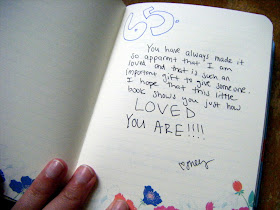 65.
You have always made it
so apparent that I am
loved and that is such an
important gift to give someone.
I hope that this little
book shows you just how
LOVED
YOU ARE!!!!